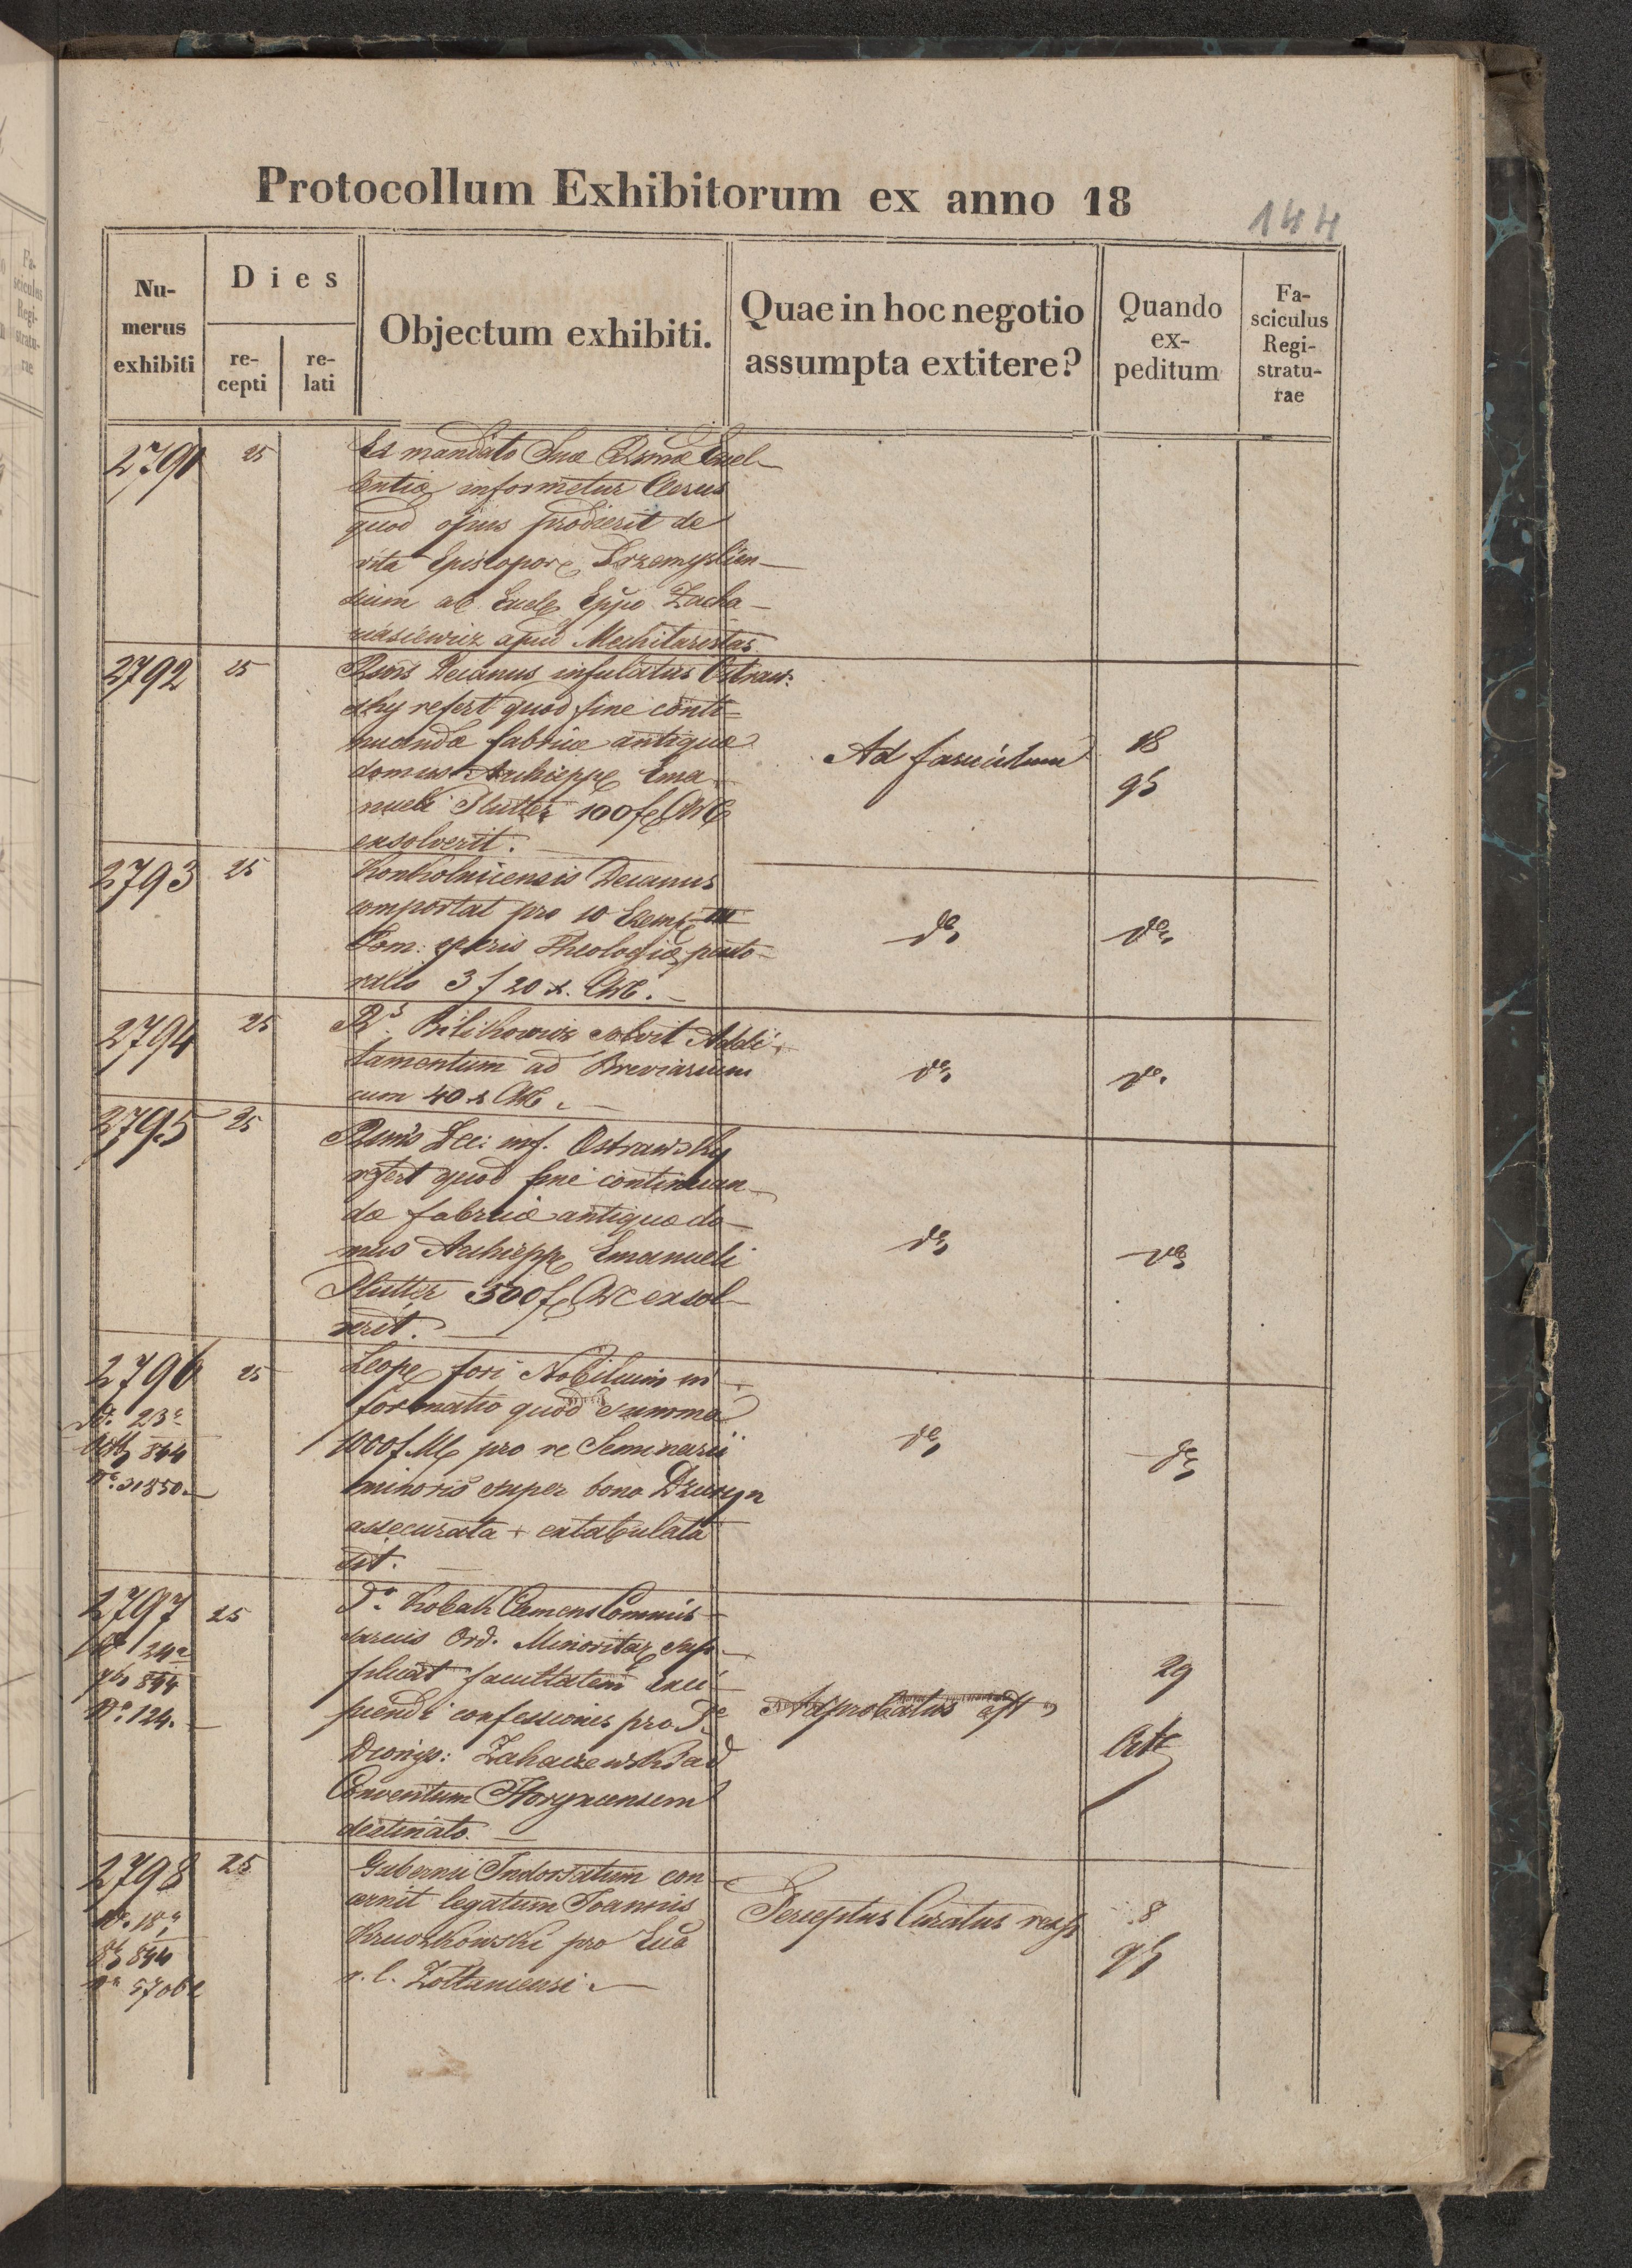 Protocollum Exhibitorum ex anno 18
144
Nu-
merus
exhibiti
Dies
re-
cepti
re-
lati
Objectum exhibiti.
Quae in hoc negotio
assumpta extitere?
Quando
ex-
peditum
Fa-
sciculus
Regi-
stratu-
rae
2791 25
Ex mandato Suae Exel-
lentiae informetur Clerus
quod opus prodierit de
vita Episcopor Przemyslien-
sium ab Excel Eppo Zacha-
riasiewicz apud Mechitaristas
2792 25
Decanus infulatus Ostraw:
sky refert quod fine conti-
nuandae fabricae antiquae
domus Archieppe Ema-
nueli Plutter 100 f
exsolverit.
Ad fasciculum
18
2793 25
Konkolnicensis Decanus
comportat pro 10 Exemp III
Tom: operis Theologiae pasto-
ralis 3 f 20 x.
do
do
2794 25
Rs. Bilikowicz solvit Addi-
tamentum ad Breviarium
cum 40 x
do
do
2795 25
Dec: inf. Ostrawsky
refert quod fine continuan-
dae fabricae antiquae do-
mus Archieppe Emanueli
Plutter 500 f exsol-
verit.
do
do
2796 25
Leop fori Nobilium in-
formatio quod summa
1000 f pro re Seminarii
minoris super bono
assecurata + extabulata
sit.
do
do
23
844
No. 31850
2797 25
P. Kobak Clemens Commis-
sarius Ord. Minoritar sup-
plicat facultatem exci-
piendi confessiones pro P.
Dionys: Zaharzewski ad
Conventum Horyncensem
destinato.
Approbatus est
29
24
844
No. 124.
2798 25
Gubernii Indorsatum con-
cernit legatum Joannis
Kruszkowski pro Ecc
r. l. Zottancensi.
Perceptus Curatus resp
8
18
844